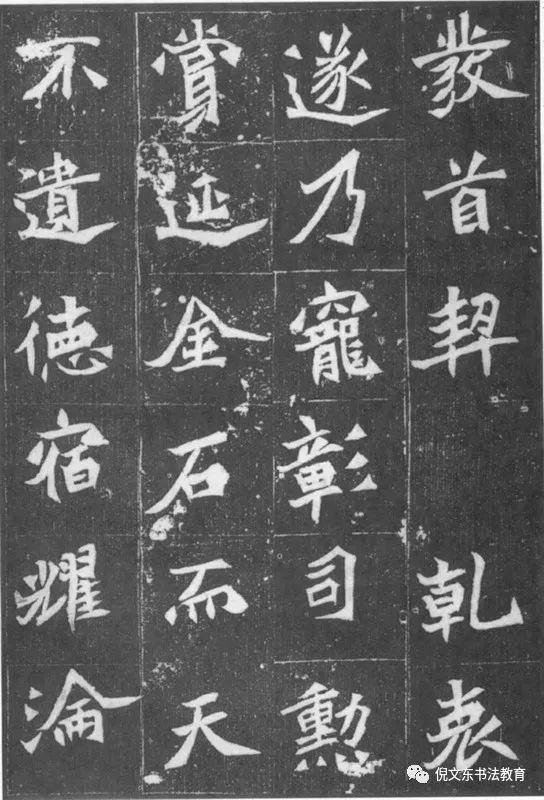 發首契 乾衷
遂乃寵章司勳
賞延金石而天
不遺德宿耀淪
倪文东书法教育